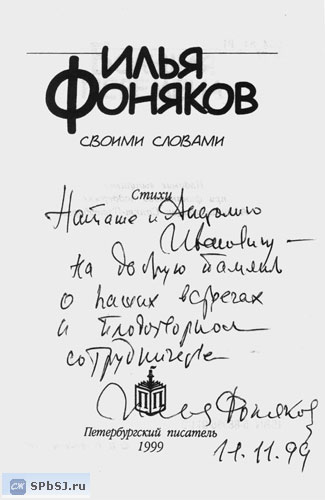 ИЛЬЯ
ФОНЯКОВ
СВОИМИ СЛОВАМИ
Стихи
Наташе и Анатолию
Ивановичу —
на добрую память
о наших встречах
и плодотворном
сотрудничестве
Илья Фоняков
Петербургский писатель
11.11.99
1999
SPbSJ.ru
СЖ